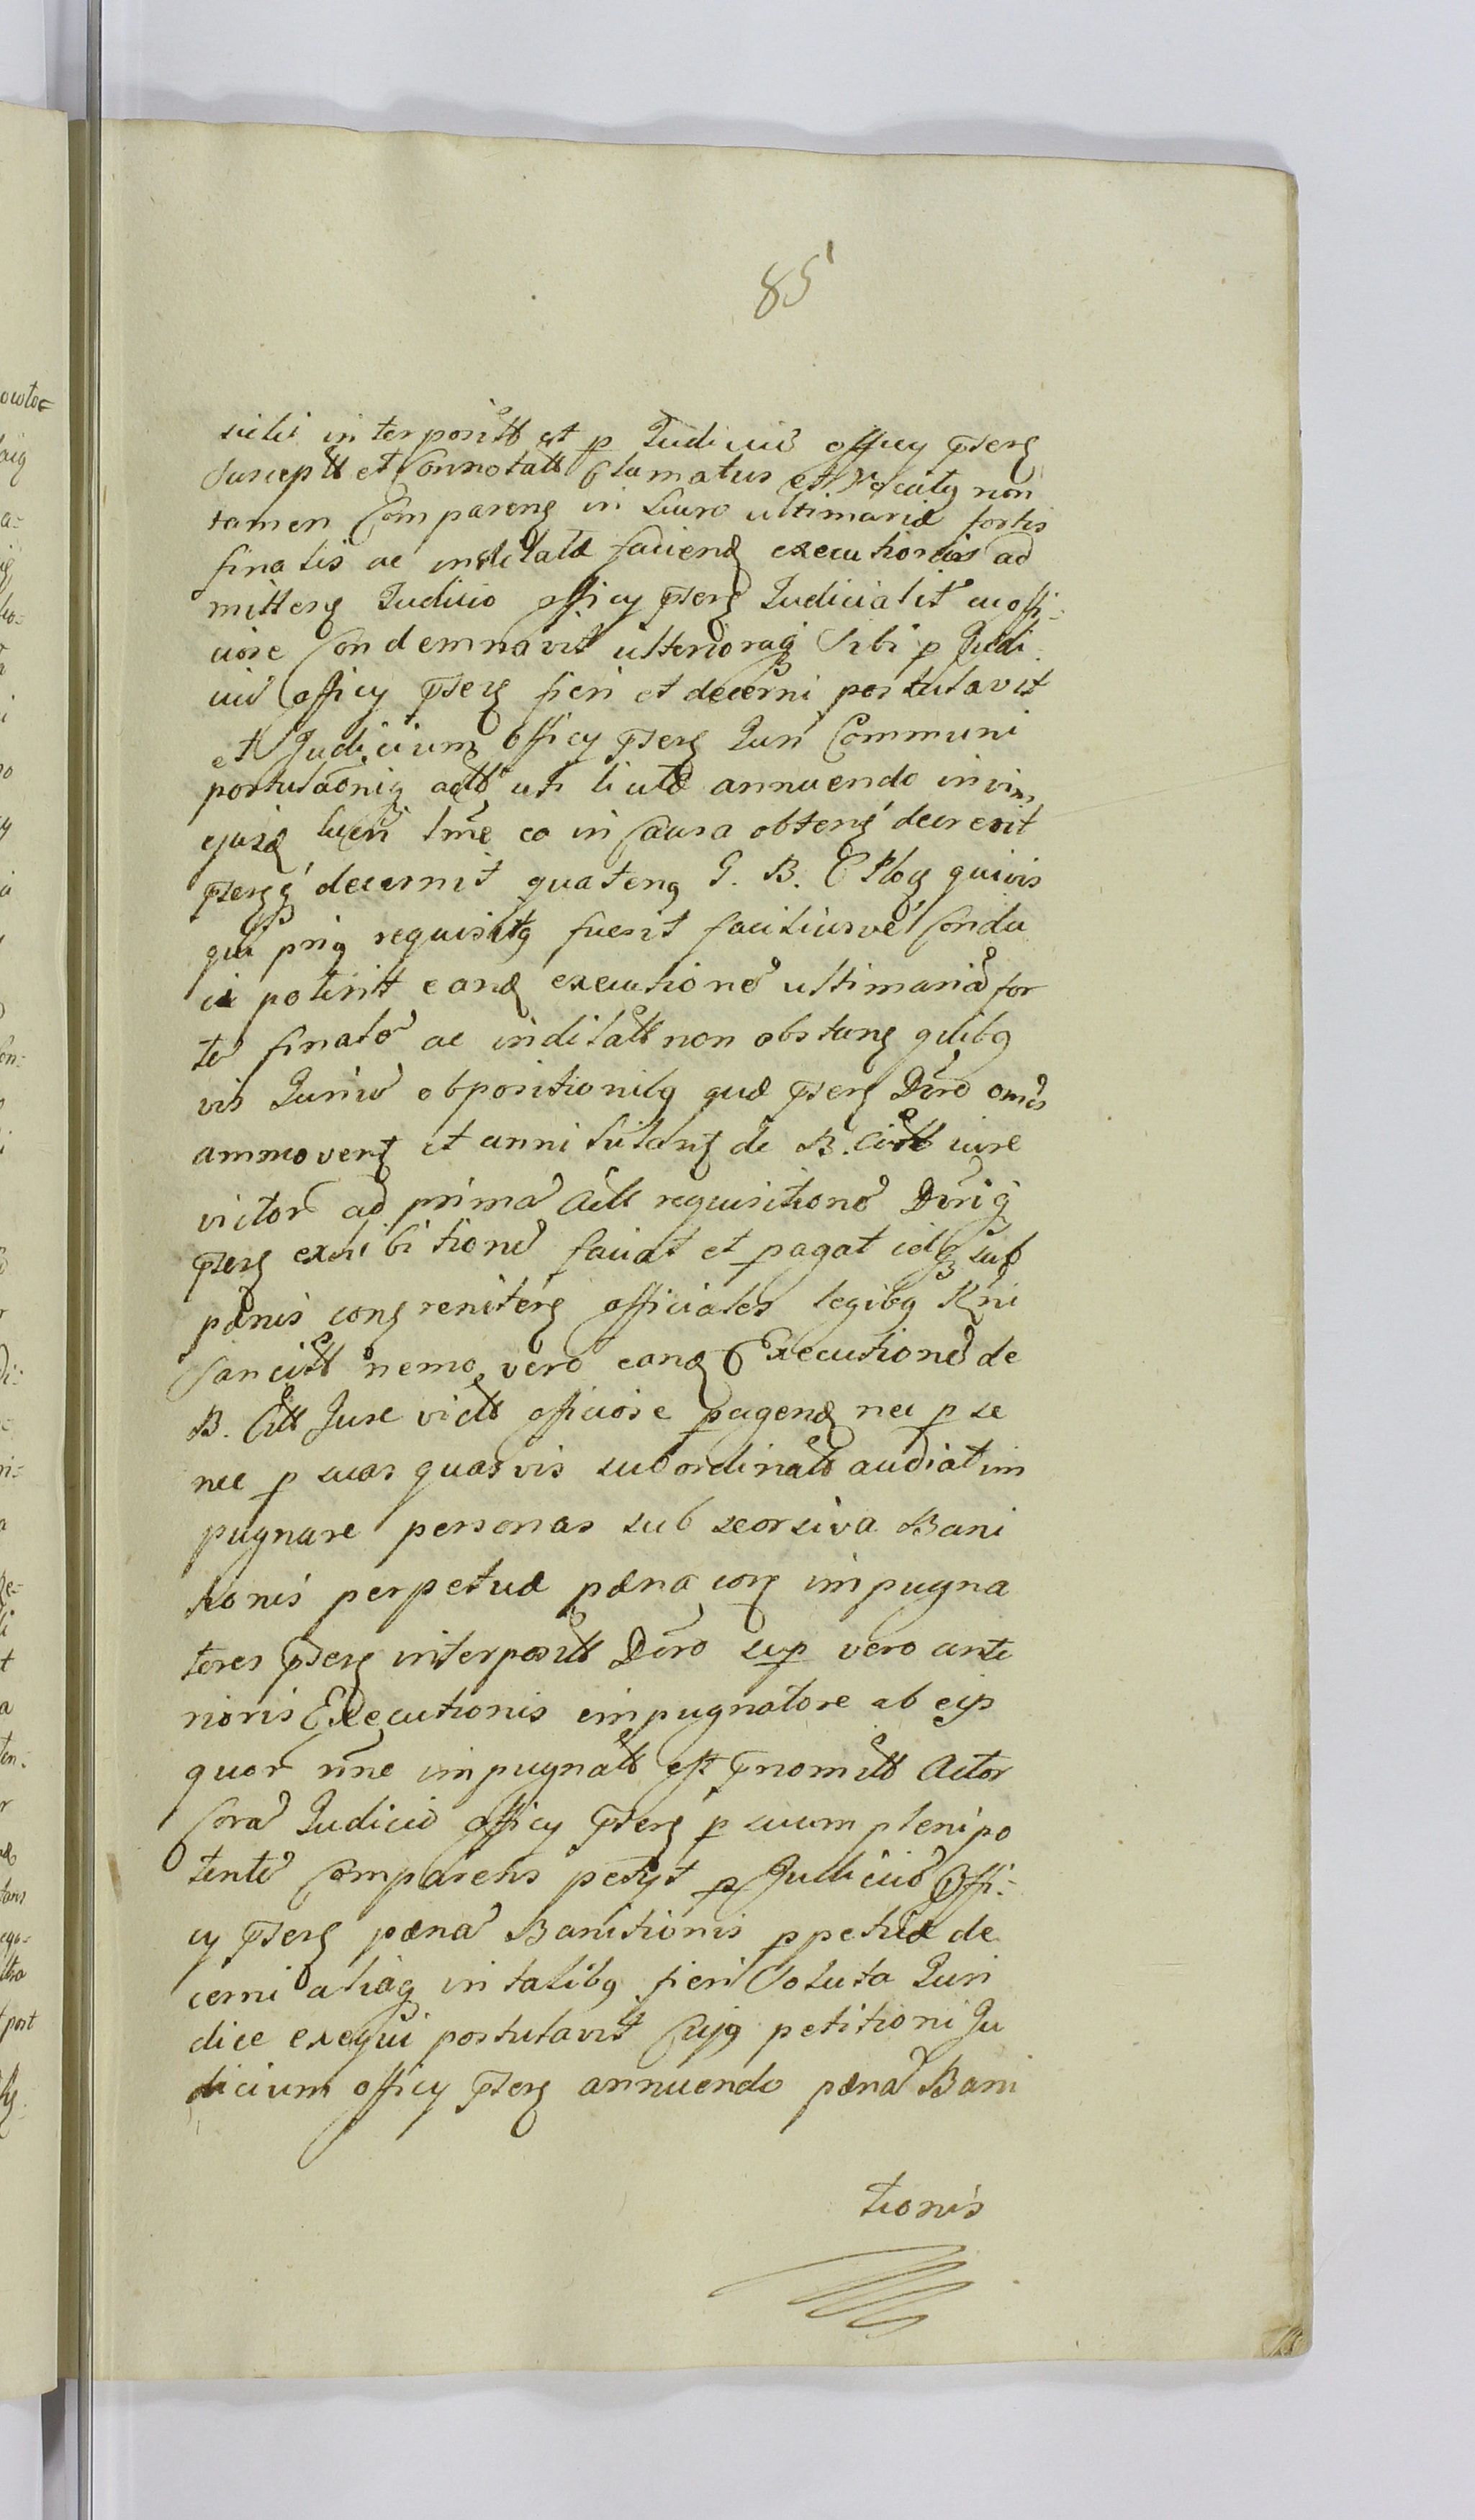 85
cilii interposit et p Judiciu officy pnterz
Suscept et Connotat Clamatus et Vocatq non
tamen Comparenz in Lucro ultimariæ fortis
finalis ac indilatæ faciend executionis ad
mittenz Judicio officy pnterz Judicialit ac offi:
ciose Condemnavit ulterioraq Sibi p Judi:
ciu officy pnterz fieri et decerni postulavit
et Judicium officy pnterz Juri Communi
postulaoniq act uti licitæ annuendo in vim
ejusd lucri tme eo in Causa obtenz decrevit
pnterzq decernit quatenq G. B. C Ploc quivis
qui priq requisitq fuerit faciliusve Condu
ci poterit eand executione ultimaria for
te finale ac indilat non obstanz qibq
vis Juriu obpositionibq quæ pnterz Dcro omes
ammovent et annihilant de B. Citt iure
victor ad prima Act requisitione Dcriq
pnterz exhibitione faciat et pagat idq sub
pænis conz renitenz officiales legibq Rni
Sancitt nemo vero eand Executione de
B. Citt Jure vict officiose pagend nec p se
nec p suas quasvis subordinat audiat im
pugnare personas sub seorsiva Bani
tionis perpetuæ pæna conz impugna
tores pnterz interposit Dcro sup vero ante
rioris Executionis impugnatore ab eijs
quor nne impugnat est pnominat Actor
Cora Judicio officy pnterz p suum plenipo
tente Comparens petyt p Judiciu Offi:
cy pnterz pæna Banitionis ppetuæ de
cerni aliaq in talibq fieri Soluta Juri
dice exequi postulavit Cujq petitioni Ju
dicium officy pnterz annuendo pæna Bani
tionis